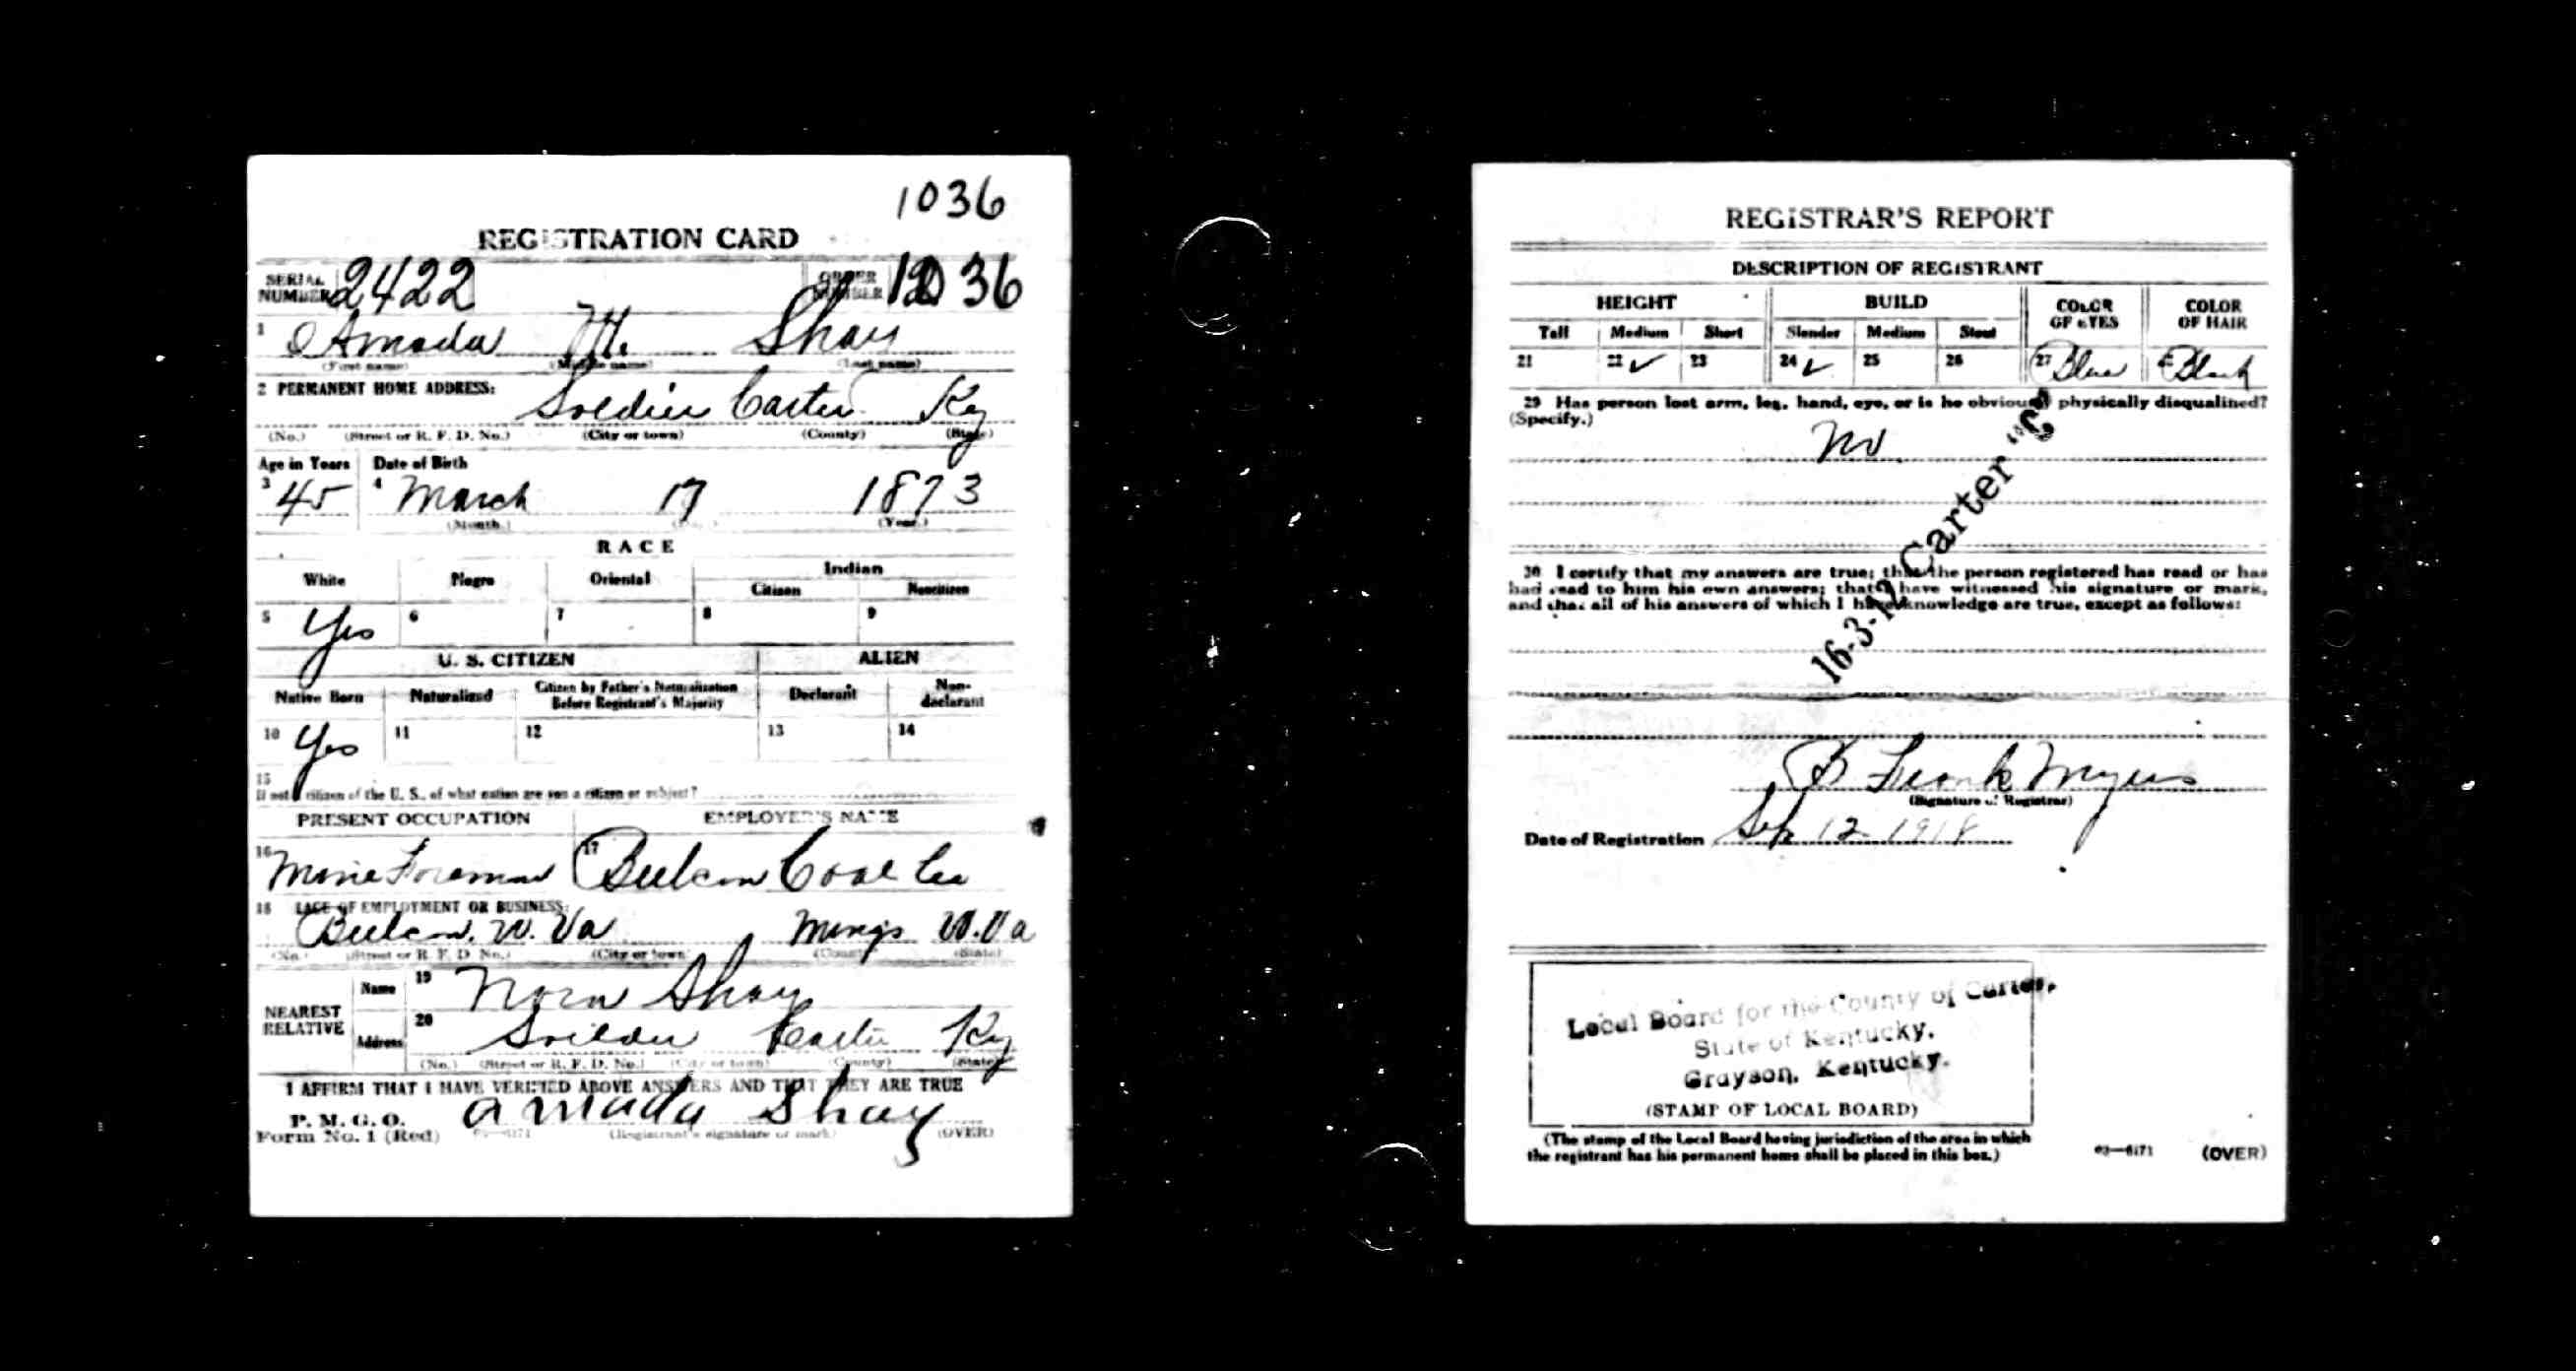 1036
REGISTRATION CARD
SERIAL NUMBER 2422 ORDER NUMBER 1036
1 Amada M. Shay
(First name) (Middle name) (Last name)
2 PERMANENT HOME ADDRESS:
Soldier Carter Ky
(No.) (Street or R. F. D. No.) (City or town) (County) (State)
Age in Years Date of Birth
3 45 4 March 17 1873
(Month.) (Day.) (Year.)
RACE
White Negro Oriental Indian
Citizen Noncitizen
5 Yes 6 7 8 9
U. S. CITIZEN ALIEN
Native Born Naturalized Citizen by Father's Naturalization Before Registrant's Majority Declarant Non-declarant
10 Yes 11 12 13 14
15
If not a citizen of the U. S., of what nation are you a citizen or subject?
PRESENT OCCUPATION EMPLOYER'S NAME
16 Mine Foreman 17 Coal Co
18 PLACE OF EMPLOYMENT OR BUSINESS:
W. Va Mingo W. Va
(No.) (Street or R. F. D. No.) (City or town) (County) (State)
NEAREST RELATIVE
Name 19 Nora Shay
Address 20 Soilder Carter Ky
(No.) (Street or R. F. D. No.) (City or town) (County) (State)
I AFFIRM THAT I HAVE VERIFIED ABOVE ANSWERS AND THAT THEY ARE TRUE
P. M. G. O.
Form No. 1 (Red) 03—6171 amada Shay
(Registrant's signature or mark) (OVER)
REGISTRAR'S REPORT
DESCRIPTION OF REGISTRANT
HEIGHT BUILD COLOR OF EYES COLOR OF HAIR
Tall Medium Short Slender Medium Stout
21 22 ✓ 23 24 ✓ 25 26 27 Blue 28 Black
29 Has person lost arm, leg, hand, eye, or is he obviously physically disqualified?
(Specify.)
No
16-3-12 Carter "C"
30 I certify that my answers are true; that the person registered has read or has
had read to him his own answers; that I have witnessed his signature or mark,
and that all of his answers of which I have knowledge are true, except as follows:
B Frank Myers
(Signature of Registrar)
Date of Registration Sep 12 1918
Local Board for the County of Carter,
State of Kentucky.
Grayson, Kentucky.
(STAMP OF LOCAL BOARD)
(The stamp of the Local Board having jurisdiction of the area in which
the registrant has his permanent home shall be placed in this box.)
03—6171 (OVER)